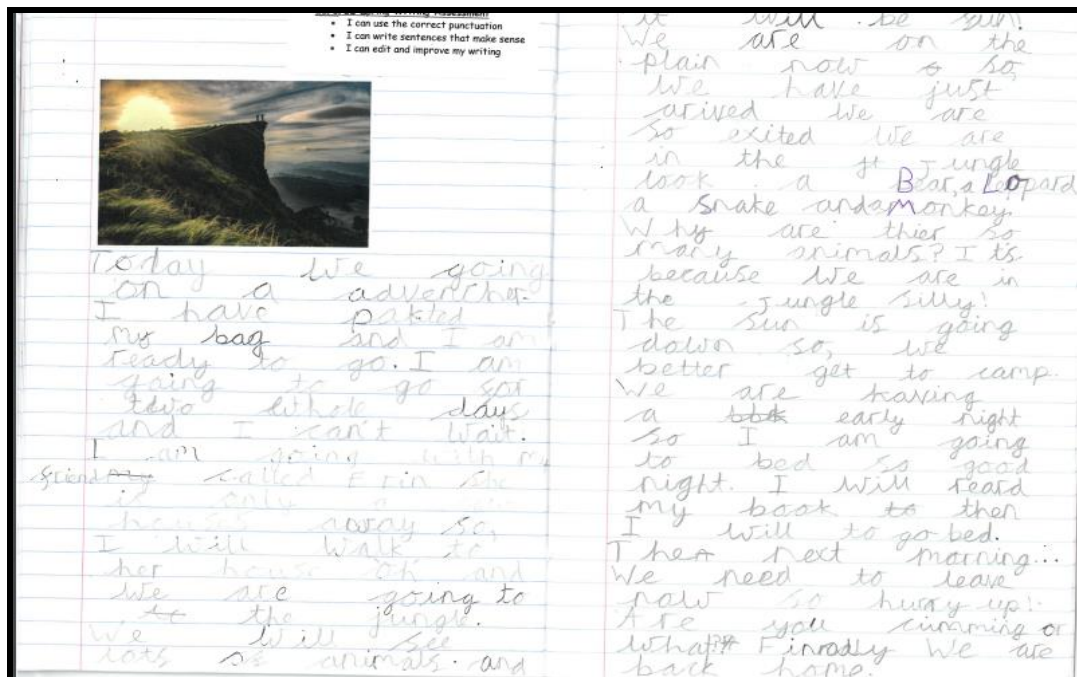 Spring Writing Assessment
• I can use the correct punctuation
• I can write sentences that make sense
• I can edit and improve my writing
Today we going
on a advencher.
I have pakted
my bag and I am
ready to go. I am
going to go for
two whole days
and I can't wait.
I am going with my
friend called Erin she
is only a
houses away so,
I will walk to
her house oh and
we are going to
the jungle.
We will see
lots of animals. and
it will be sun!
We are on the
plain now so,
We have just
arived We are
so exited We are
in the Jungle
look a Bear, a Leopard
a snake and a Monkey.
Why are thier so
many animals? I ts
because We are in
the Jungle silly!
The sun is going
down so, we
better get to camp.
We are having
a early night
so I am going
to bed so good
night. I will reard
my book then
I will to go bed.
The next morning...
We need to leave
now so hurry up!
Are you cumming or
what? Finradly We are
back home.